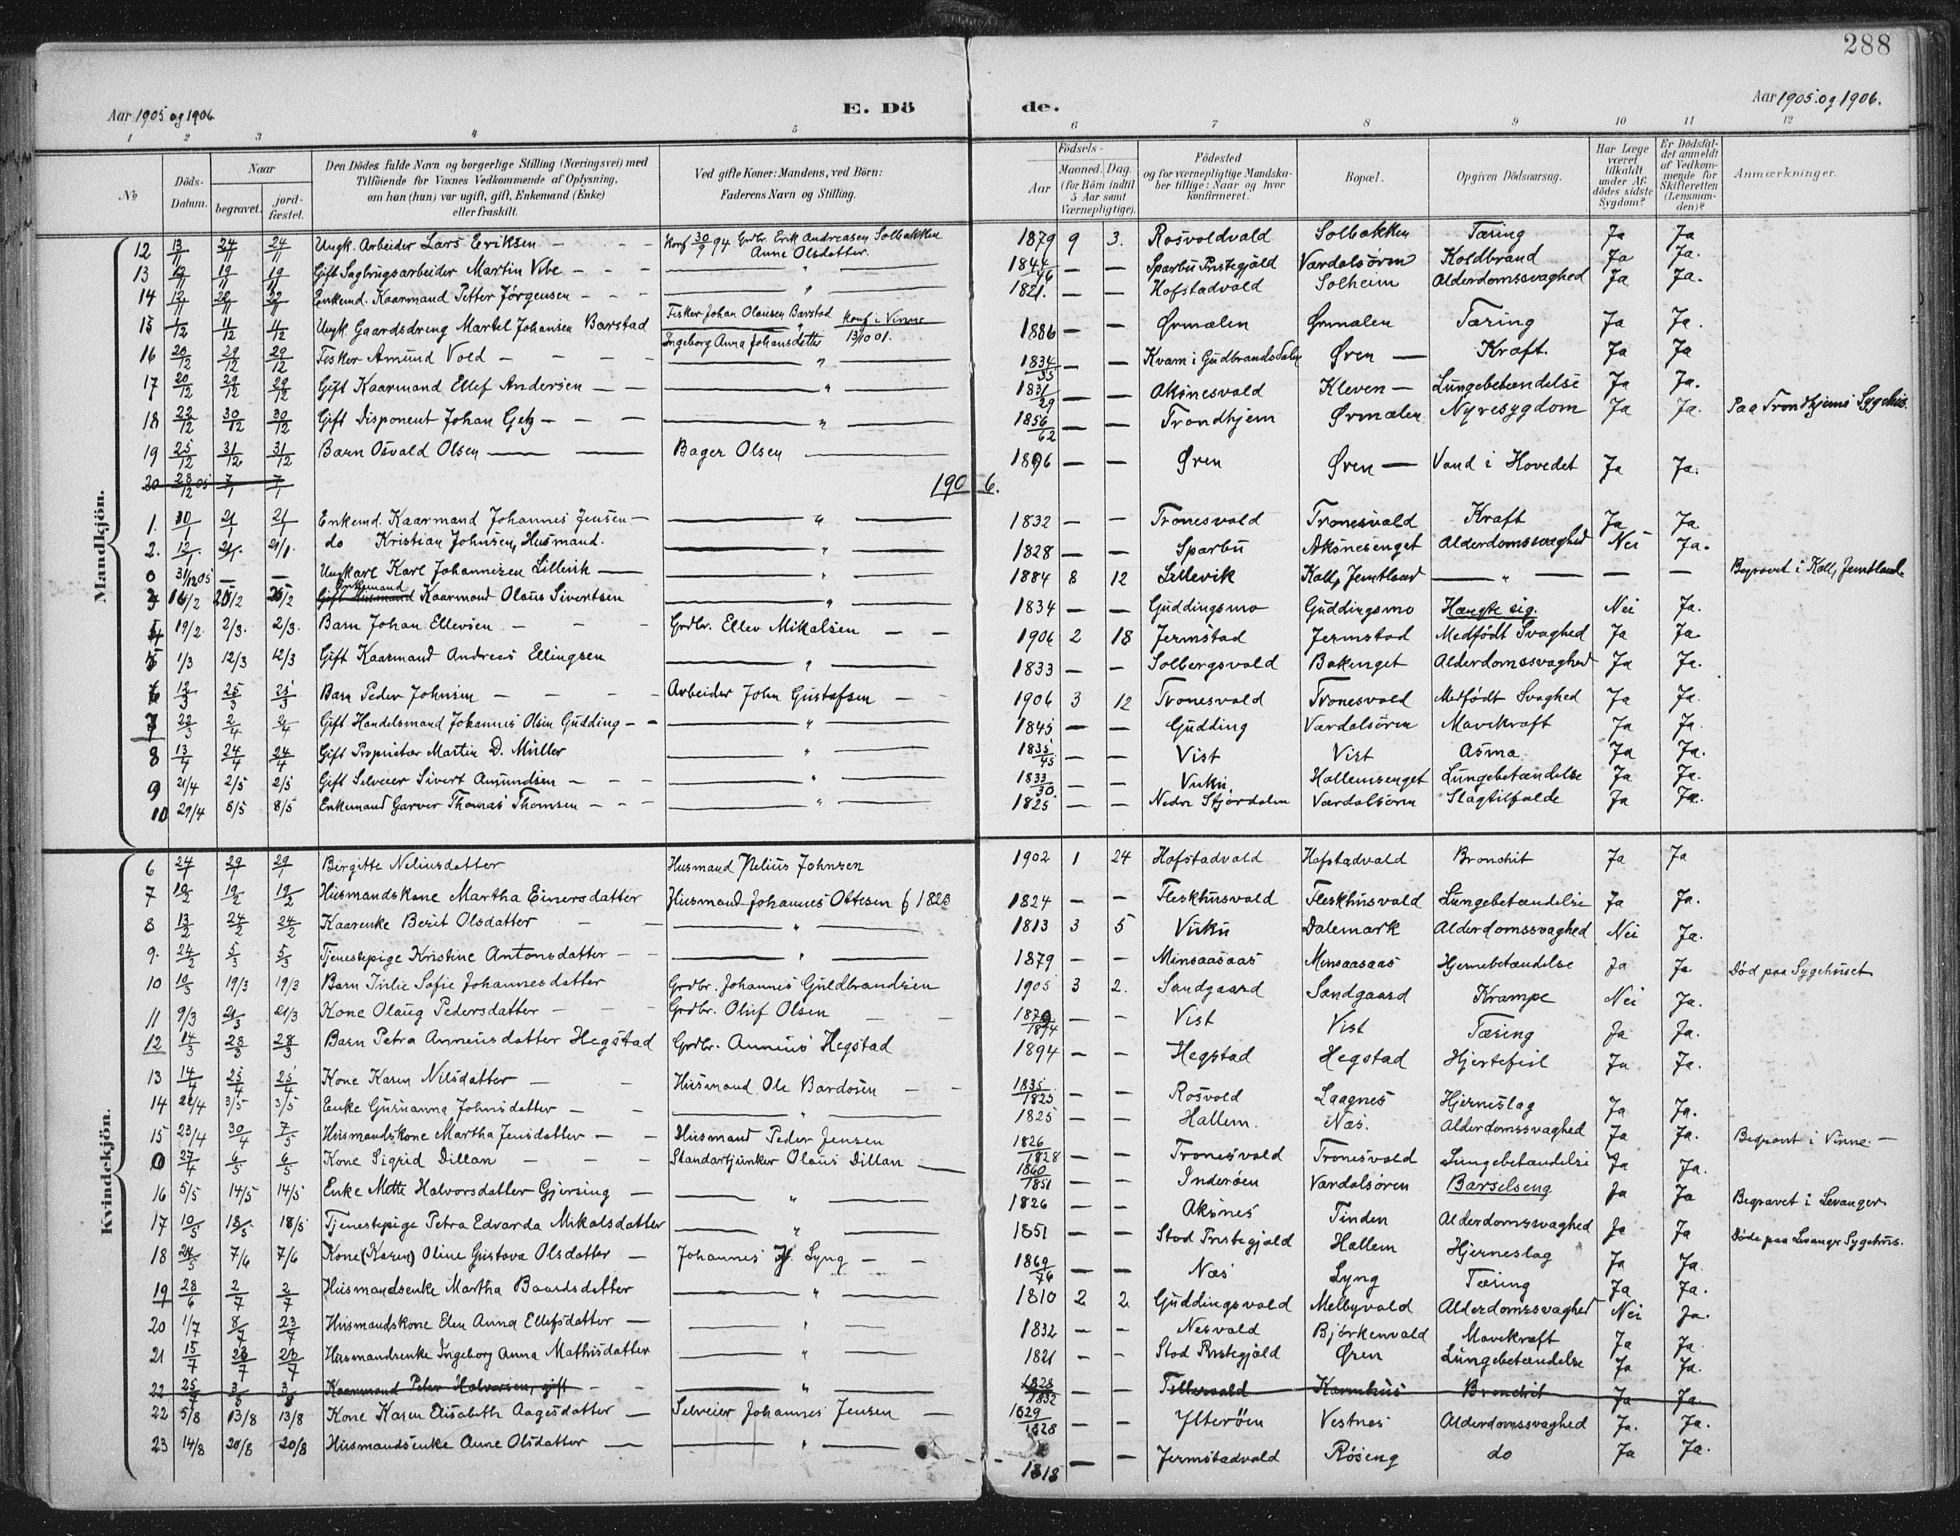 288
Aar 1905 og 1906
E. Dö
de.
Aar 1905 og 1906.
1 2 3 4 5 6 7 8 9 10 11 12
No
Döds-Datum.
Naar
begravet.
jord-fæstet.
Den Dödes fulde Navn og borgerlige Stilling (Næringsvei) med
Tilföiende for Voxnes Vedkommende af Oplysning,
om han (hun) var ugift, gift, Enkemand (Enke)
eller fraskilt.
Ved gifte Koner: Mandens, ved Börn:
Faderens Navn og Stilling.
Födsels-
Aar
Maaned. Dag.
(for Börn indtil
5 Aar samt
Værnepligtige).
Födested
og for værnepligtige Mandska-
ber tillige: Naar og hvor
konfirmeret.
Bopæl.
Opgiven Dödsaarsag.
Har Læge
været
tilkaldt
under Af-
dödes sidste
Sygdom?
Er Dödsfal-
det anmeldt
af Vedkom-
mende for
Skifteretten
(Lensman-
den)?
Anmærkninger.
Mandkjön.
12 13/11 24/11 24/11 Ungk. Arbeider Lars Eriksen — Konf 30/9 94 Grdbr. Erik Andreasen Solbakken Anne Olsdatter. 1879 9 3. Rosvoldvald Solbakken Tæring Ja Ja
13 19/11 19/11 Gift Sagbrugsarbeider Martin Vibe — " 1844/46 — — Sparbu Prstegjæld Værdalsøren Koldbrand Ja Ja.
14 12/11 Enkemd. Kaarmand Petter Jörgensen — " 1821. — — Hofstadvald Solheim Alderdomssvaghed Ja Ja.
15 1/12 11/12 11/12 Ungk. Gaardsdreng Martel Johansen Barstad Fisker Johan Olausen Barstad Konf i Vinne Ingeborg Anna Johansdatter 13/10 01. 1886 — — Ørmælen Ørmælen Tæring Ja Ja.
16 20/12 29/12 29/12 Fisker Amund Vold — " 1834/35 — — Kvam i Gudbrandsdalen Øren — Kraft. Ja Ja
17 20/12 29/12 29/12 Gift Kaarmand Ellef Andersen — " 1831/29 — — Aksnesvald Kleven — Lungebetændelse Ja Ja.
18 22/12 30/12 30/12 Gift Disponent Johan Getz — " 1856/62 — — Trondhjem Ørmælen Nyresygdom Ja Ja. Paa Trondhjems Sygehus.
19 25/12 31/12 31/12 Barn Osvald Olsen — Bager Olsen — 1896 — — Øren Øren — Vand i Hovedet Ja Ja.
20 28/12 05 7/1 7/1
1906.
1. 21/1 21/1 Enkemd. Kaarmand Johannes Jensen — " 1832 — — Tronesvald Tronesvald Kraft Ja Ja
2. 12/1 21/1. 21/1. do Kristian Johnsen, Husmand. " 1828 — — Sparbu Aksnesenget Alderdomssvaghed Nei Ja.
0 31/12 05 — — Ungkarl Karl Johannesen Lillevik — " 1884 8 12 Lillevik Kall, Jemtland — " — — — Begravet i Kall, Jemtland
3 Enkemand Gift Husmand Kaarmand Olaus Sivertsen " 1834 — — Guddingsmo Guddingsmo Hængte sig. Nei Ja.
4 19/2. 2/3. 2/3. Barn Johan Ellevsen — Grdbr. Ellev Mikalsen — 1906 2 18 Jermstad Jermstad Medfödt Svaghed Ja Ja
5 1/3 12/3 12/3 Gift Kaarmand Andreas Ellingsen " 1833 — — Solbergsvald Bakenget Alderdomssvaghed Ja Ja.
6 12/3 25/3 25/3 Barn Peder Johnsen — Arbeider John Gustafsen — 1906 3 12 Tronesvald Tronesvald Medfödt Svaghed Ja Ja.
7 22/3 2/4 2/4 Gift Handelsmand Johannes Olsen Gudding — " 1845 — — Gudding Værdalsören Mavekræft Ja Ja.
8 13/4 24/4 24/4 Gift Proprietær Martin D. Müller " 1835/45 — — Vist Vist Asma Ja Ja.
9 21/4 2/5 2/5 Gift Selveier Sivert Amundsen — " 1833/30. — — Vuku Hallemsenget Lungebetændelse Ja Ja.
10 29/4 8/5 8/5 Enkemand Garver Thomas Thomsen — " 1825 — — Nedre Stjördalen Værdalsören Slagtilfælde Ja Ja.
Kvindekjön.
6 24/1 29/1 29/1 Birgitte Neliusdatter Husmand Nelius Johnsen 1902 1 24 Hofstadvald Hofstadvald Bronchit Ja Ja
7 19/2 19/2 Husmandskone Martha Einersdatter Husmand Johannes Ottesen f 1823 1824 — — Fleskhusvald Fleskhusvald Lungebetændelse Ja Ja.
8 13/2 24/2 24/2 Kaarenke Berit Olsdatter — " 1813 3 5 Vuku Dalemark Alderdomssvaghed Nei Ja.
9. 24/2 5/3 5/3 Tjenestepige Kristine Antonsdatter — " 1879 — — Minsaasaas Minsaasaas Hjernebetændelse Ja Ja Död paa Sygehuset
10 10/3 19/3 19/3 Barn Julie Sofie Johannesdatter Grdbr. Johannes Guldbrandsen 1905 3 2. Sandgaard Sandgaard Krampe Nei Ja.
11 9/3 21/3 21/3 Kone Olaug Pedersdatter — Grdbr. Oluf Olsen — 1870/1874 — — Vist Vist Tæring Ja Ja.
12 14/3 28/3 28/3 Barn Petra Anneusdatter Hegstad Grdbr. Anneus Hegstad 1894 — — Hegstad Hegstad Hjertefeil Ja Ja.
13 14/4 25/4 25/4 Kone Karen Nilsdatter — Husmand Ole Bardosen — 1835/1825 — — Rosvold Laagnes Hjerneslag Ja Ja.
14 3/5 3/5 Enke Gurianna Johnsdatter — " 1825 — — Hallem. Næs. Alderdomssvaghed Ja Ja.
15 23/4 30/4 7/5 Husmandskone Martha Jensdatter — Husmand Peder Jensen 1826/1828 — — Tronesvald Tronesvald Lungebetændelse Ja Ja. Begravet i Vinne. —
0 27/4 6/5 6/5 Kone Sigrid Dillan — Standartjunker Olaus Dillan — 1860/1851 — — Inderöen Værdalsören Barselseng Ja Ja
16 5/5 14/5 14/5 Enke Mette Halvorsdatter Gjersing — " 1826 — — Aksnes Tinden Alderdomssvaghed Ja Ja Begravet i Levanger
17 10/5 18/5 18/5 Tjenestepige Petra Edvarda Mikalsdatter " 1851 — — Stod Prstegjæld Hallem Hjerneslag Ja Ja. Döde paa Levanger Sygehus.
18 7/6 7/6 Kone (Karen) Oline Gustava Olsdatter — Johannes Lyng — 1869/76 — — Næs Lyng Tæring Ja Ja.
19 28/6 2/7 2/7 Husmandsenke Martha Baardsdatter " 1810 2 2 Guddingsvald Melbyvald Alderdomssvaghed Nei Ja.
20 1/7 8/7 23/7 Husmandskone Elen Anna Ellefsdatter — " 1832 — — Nesvald Björkenvald Mavekræft Ja Ja.
21 15/7 23/7 23/7 Husmandsenke Ingeborg Anna Mathisdatter " 1821 — — Stod Prstegjæld Øren Lungebetændelse Ja Ja.
22 25/7 3/8 3/8 Kaarmand Peter Halvorsen, gift — " 1828/1832 Bronchit Ja Ja.
22 5/8 13/8 13/8 Kone Karen Elisabeth Aagesdatter — Selveier Johannes Jensen — 1829/1828 — — Ytteröen Vestnes Alderdomssvaghed Ja. Ja.
23 14/8 20/8 20/8 Husmandsenke Anne Olsdatter — " 1818 — — Jermstadvald Röseng do Ja Ja.